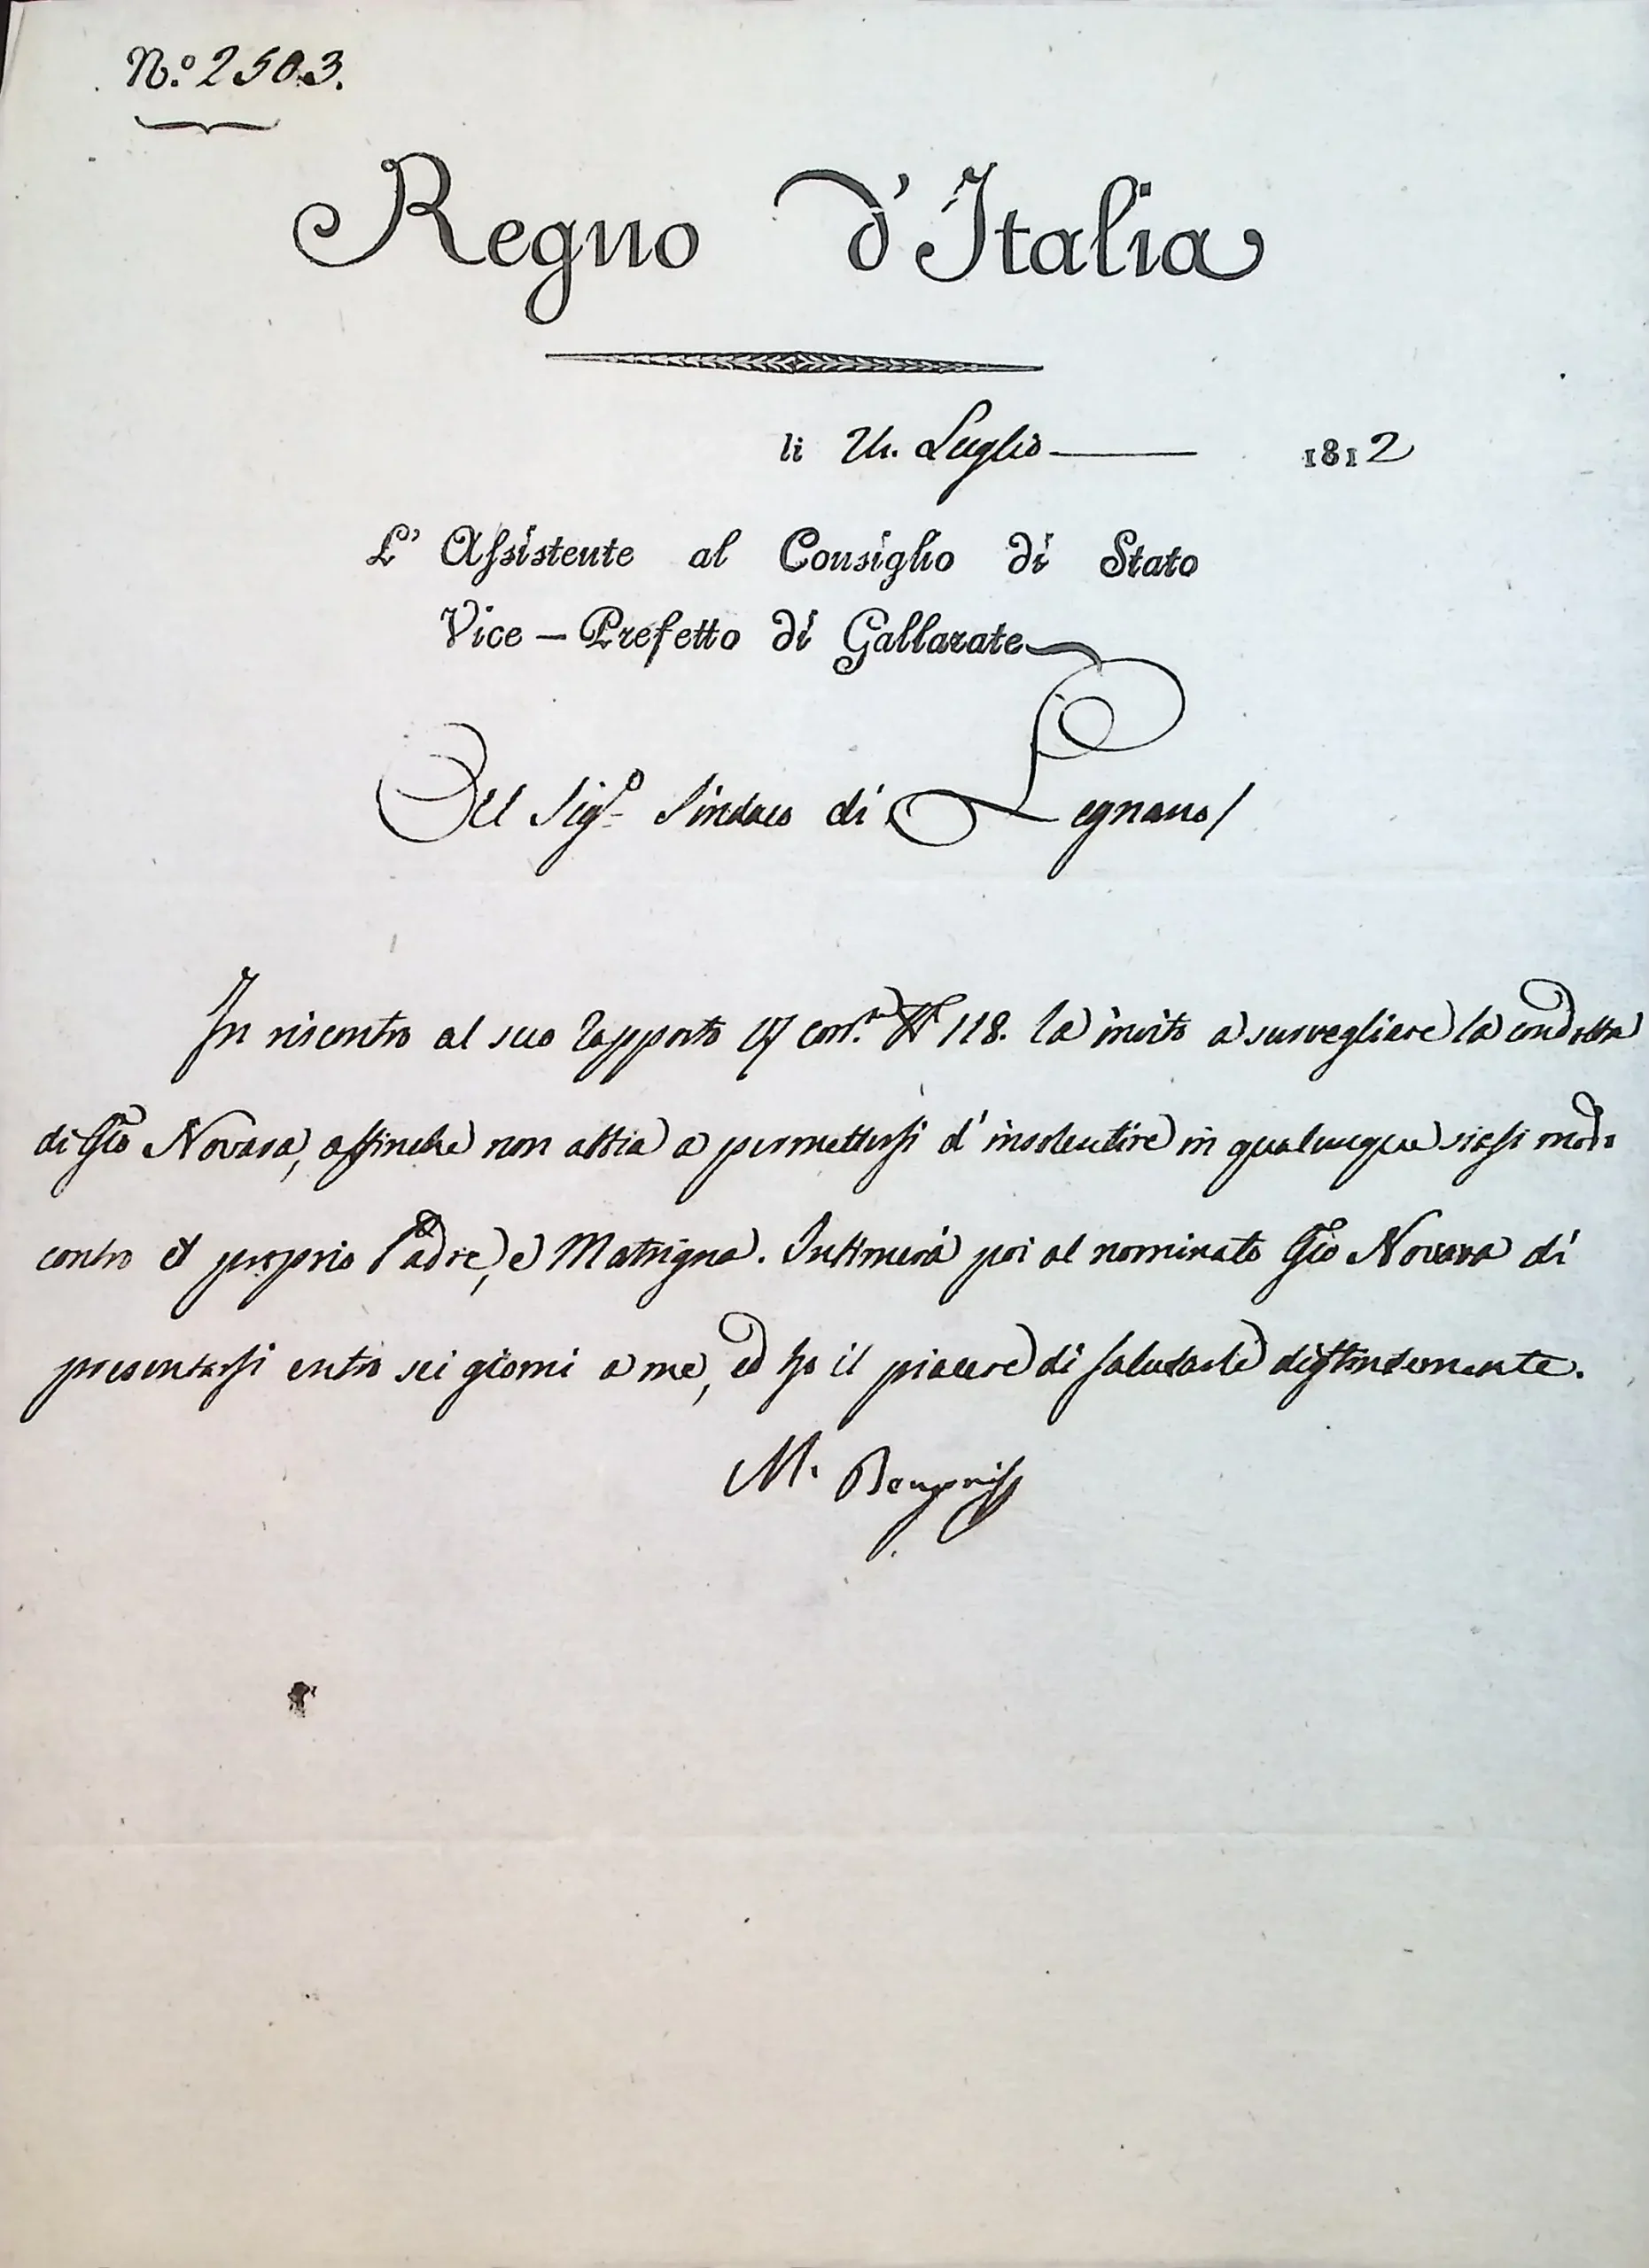 N.o 2503.
Regno d'Italia
li 21. Luglio 1812
L' Assistente al Consiglio di Stato
Vice-Prefetto di Gallarate
Al Sig.o Sindaco di Legnano
In riscontro al suo rapporto 17 corr.e N.o 118. la invito a sorvegliare la condotta
di Gio Novara, affinchè non abbia a permettersi d'insolentire in qualunque siasi modo
contro il proprio Padre, e Matrigna. Intimerà poi al nominato Gio Novara di
presentarsi entro sei giorni a me, ed ho il piacere di salutarla distintamente.
M.